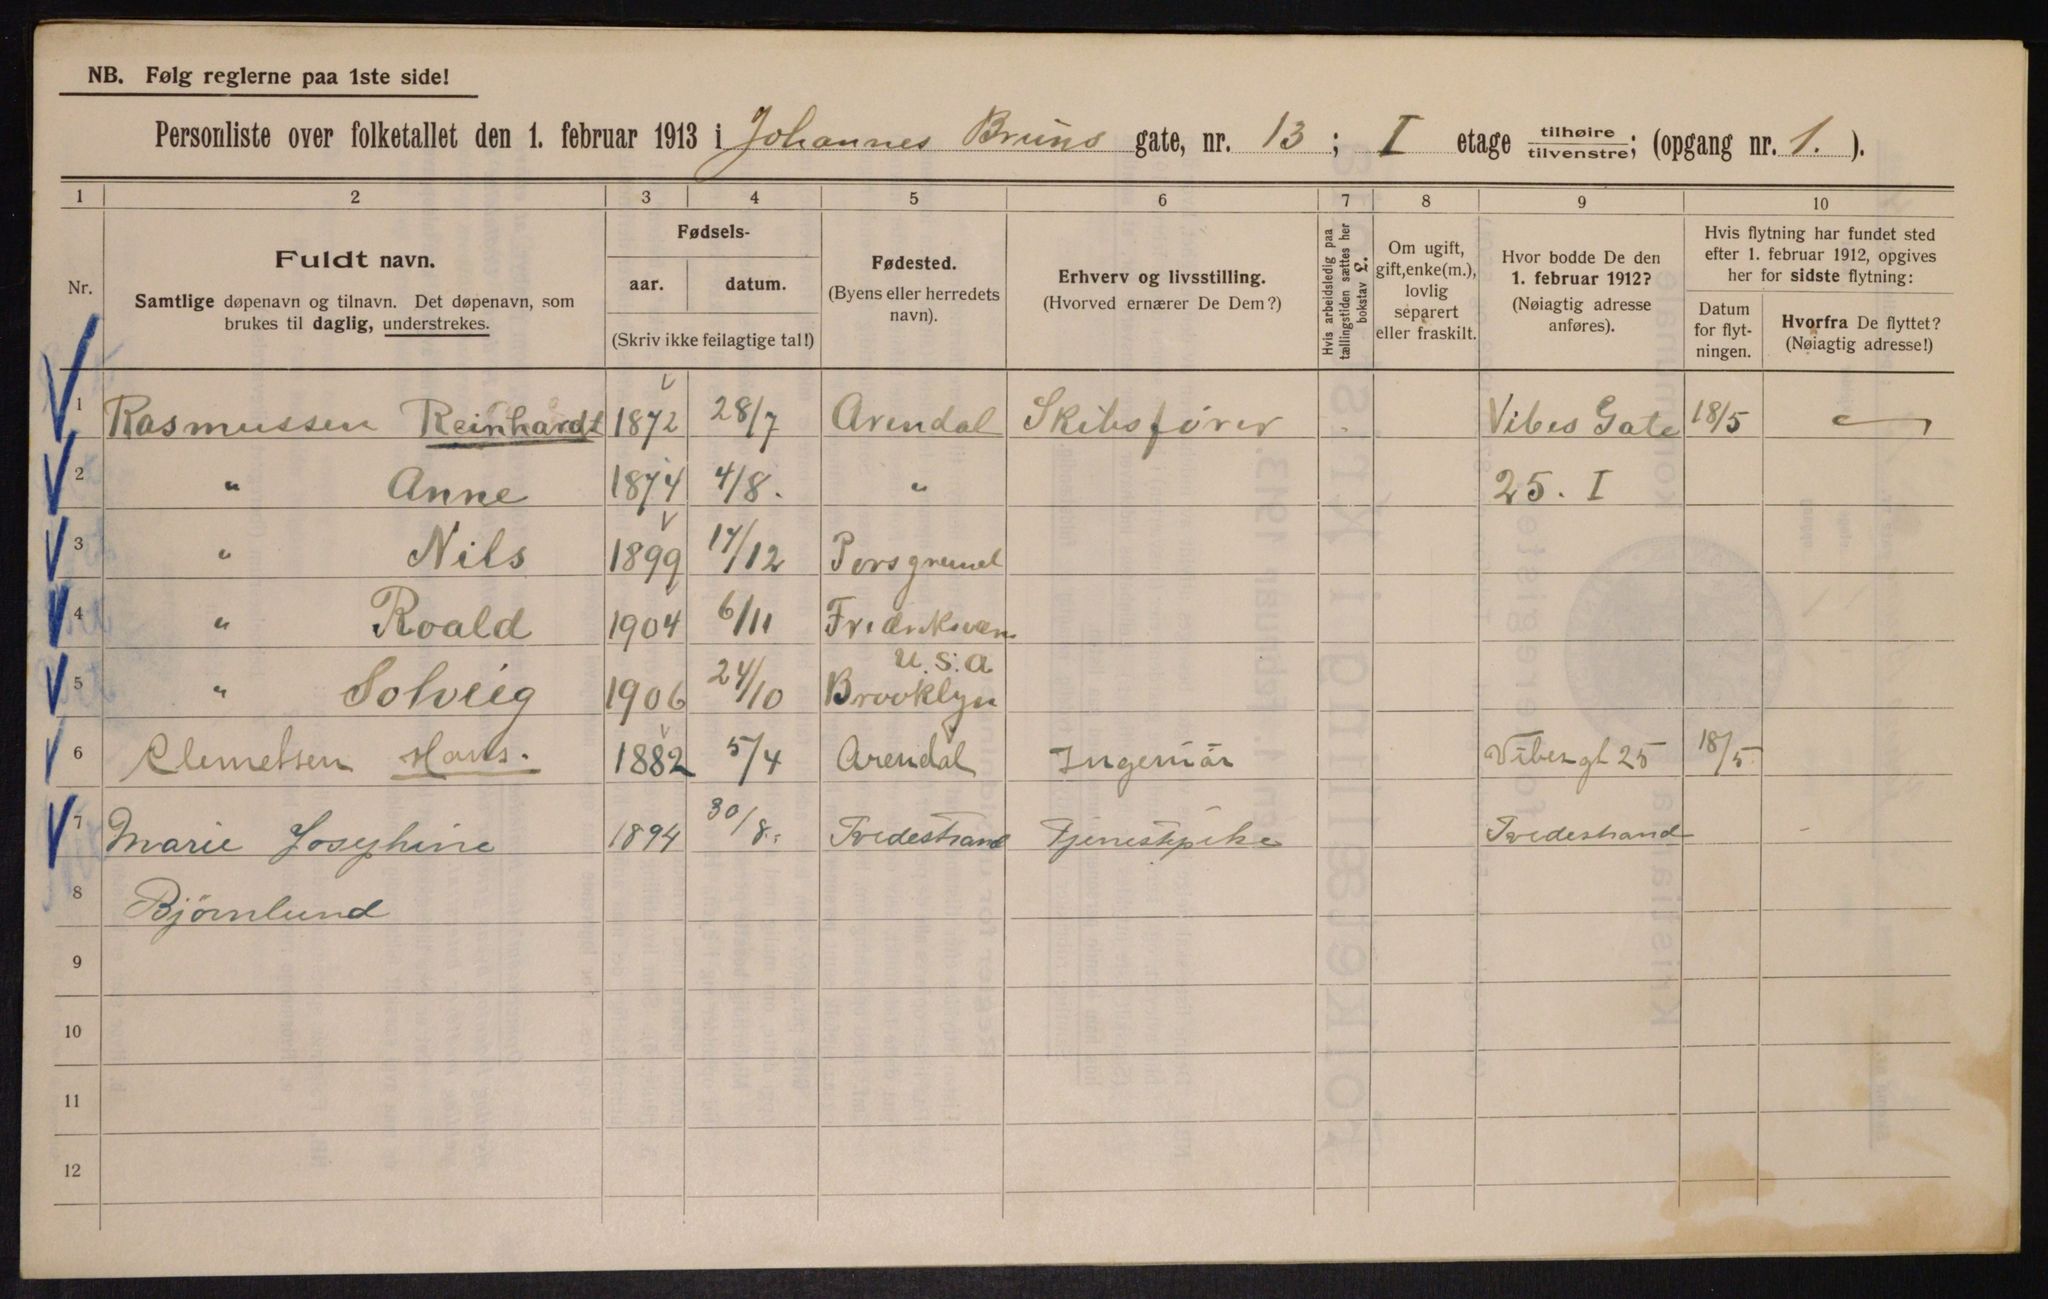 NB. Følg reglerne paa 1ste side!
Personliste over folketallet den 1. februar 1913 i Johannes Bruns gate, nr. 13; I etage tilhøire/tilvenstre; (opgang nr. 1.).
1 2 3 4 5 6 7 8 9 10
Nr.
Fuldt navn.
Samtlige døpenavn og tilnavn. Det døpenavn, som
brukes til daglig, understrekes.
Fødsels-
aar. datum.
(Skriv ikke feilagtige tal!)
Fødested.
(Byens eller herredets
navn).
Erhverv og livsstilling.
(Hvorved ernærer De Dem?)
Hvis arbeidsledig paa
tællingstiden sættes her
bokstav l.
Om ugift,
gift, enke(m.),
lovlig
separert
eller fraskilt.
Hvor bodde De den
1. februar 1912?
(Nøiagtig adresse
anføres).
Hvis flytning har fundet sted
efter 1. februar 1912, opgives
her for sidste flytning:
Datum
for flyt-
ningen.
Hvorfra De flyttet?
(Nøiagtig adresse!)
1 Rasmussen Reinhardt 1872 28/7 Arendal Skibsfører Vibes Gate 18/5
2 " Anne 1874 4/8. " 25. I
3 " Nils 1899 17/12 Porsgrund
4 " Roald 1904 6/11 Fredriksværn
U.S.A
5 " Solveig 1906 24/10 Brooklyn
6 Clemetsen Hans. 1882 5/4 Arendal Ingeniør Vibesgt 25 18/5
7 Marie Josephine 1894 30/8. Tvedestrand Tjenestpike Tvedestrand
8 Bjørnlund
9
10
11
12